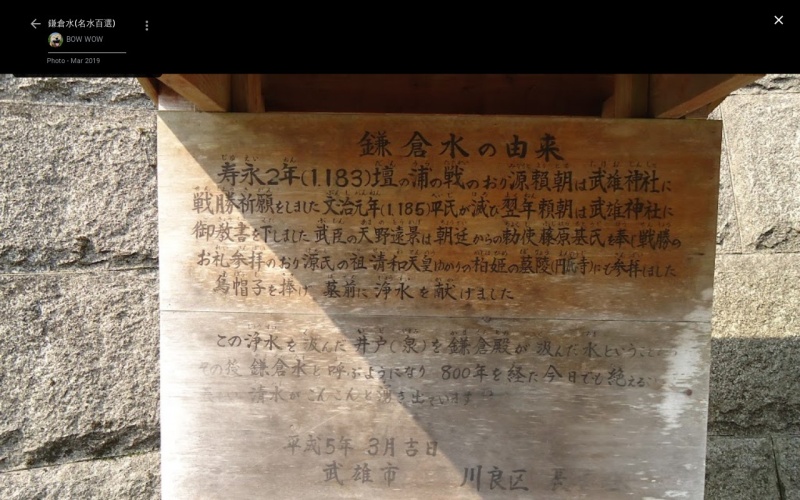 鎌倉水(名水百選)
BOW WOW
Photo - Mar 2019
鎌倉水の由来
寿永2年(1.183)壇の浦の戦のおり源頼朝は武雄神社に
戦勝祈願をしました 文治元年(1.185)平氏が滅び翌年頼朝は武雄神社に
御教書を下しました 武臣の天野遠景は朝廷からの勅使藤原基氏を奉じ戦勝の
お礼参拝のおり源氏の祖清和天皇ゆかりの柏姫の墓陵(円応寺)にも参拝しました
烏帽子を捧げ 墓前に浄水を献けました
この浄水を汲んだ井戸(泉)を鎌倉殿が汲んだ水ということ
その後 鎌倉水と呼ぶようになり 800年を経た今日でも絶える
清水がこんこんと湧き出ています
平成5年 3月吉日
武雄市 川良区